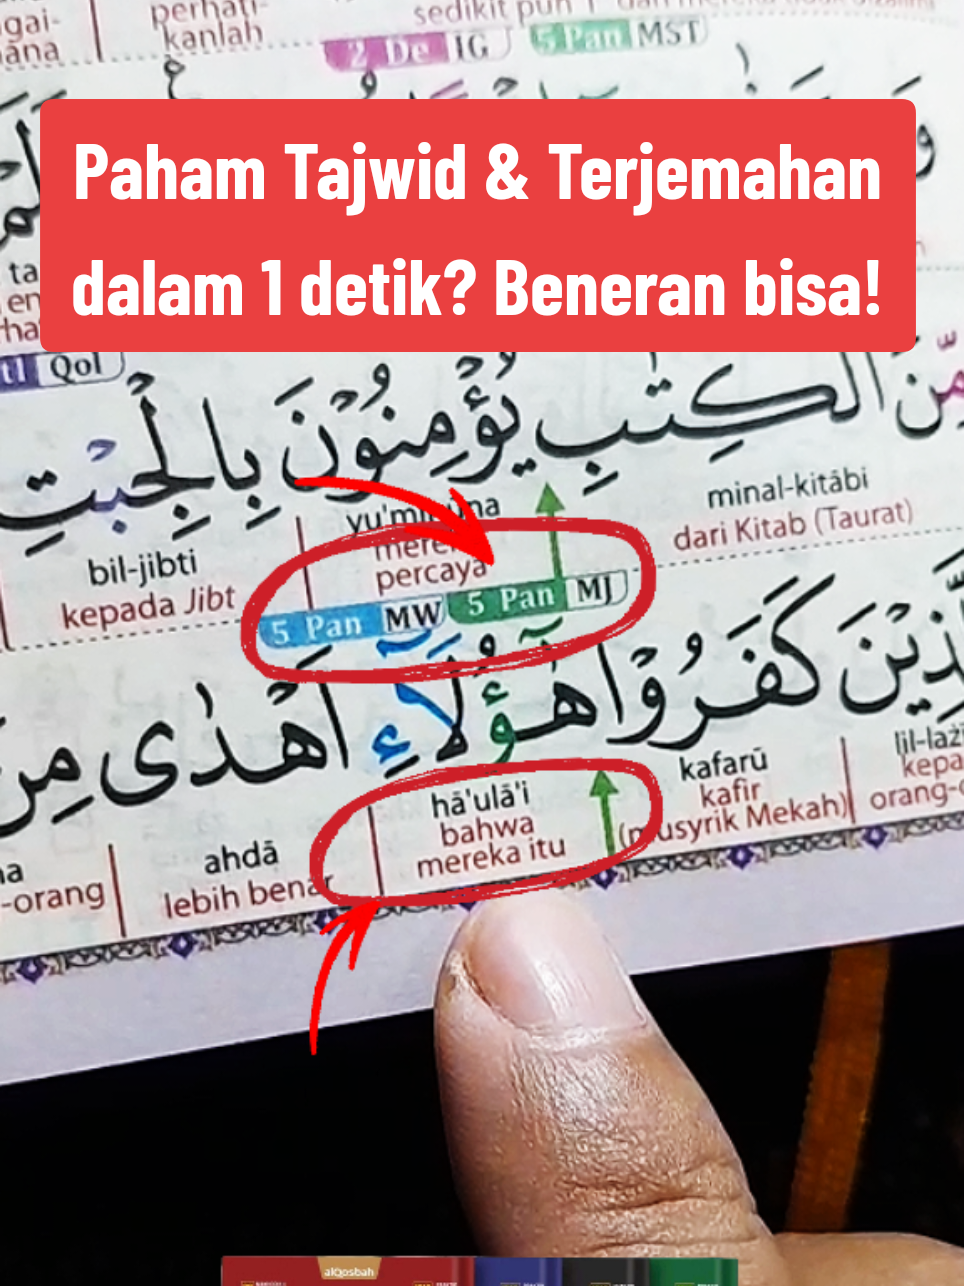 gai-
perhati-
sedikit pun
āna
kanlah
2 De IG
5 Pan MST
Paham Tajwid & Terjemahan
dalam 1 detik? Beneran bisa!
ta
Qol
مِّنَ الْكِتٰبِ يُؤْمِنُوْنَ بِالْجِبْتِ
minal-kitābi
yu'minūna
bil-jibti
dari Kitab (Taurat)
percaya
kepada Jibt
5 Pan MJ
5 Pan MW
كَفَرُوْا هٰٓؤُلَاۤءِ اَهْدٰى مِنَ
kafarū
hā'ulā'i
ahdā
kafir
bahwa
lebih benar
(musyrik Mekah)
mereka itu
-orang
orang-
alQosbah